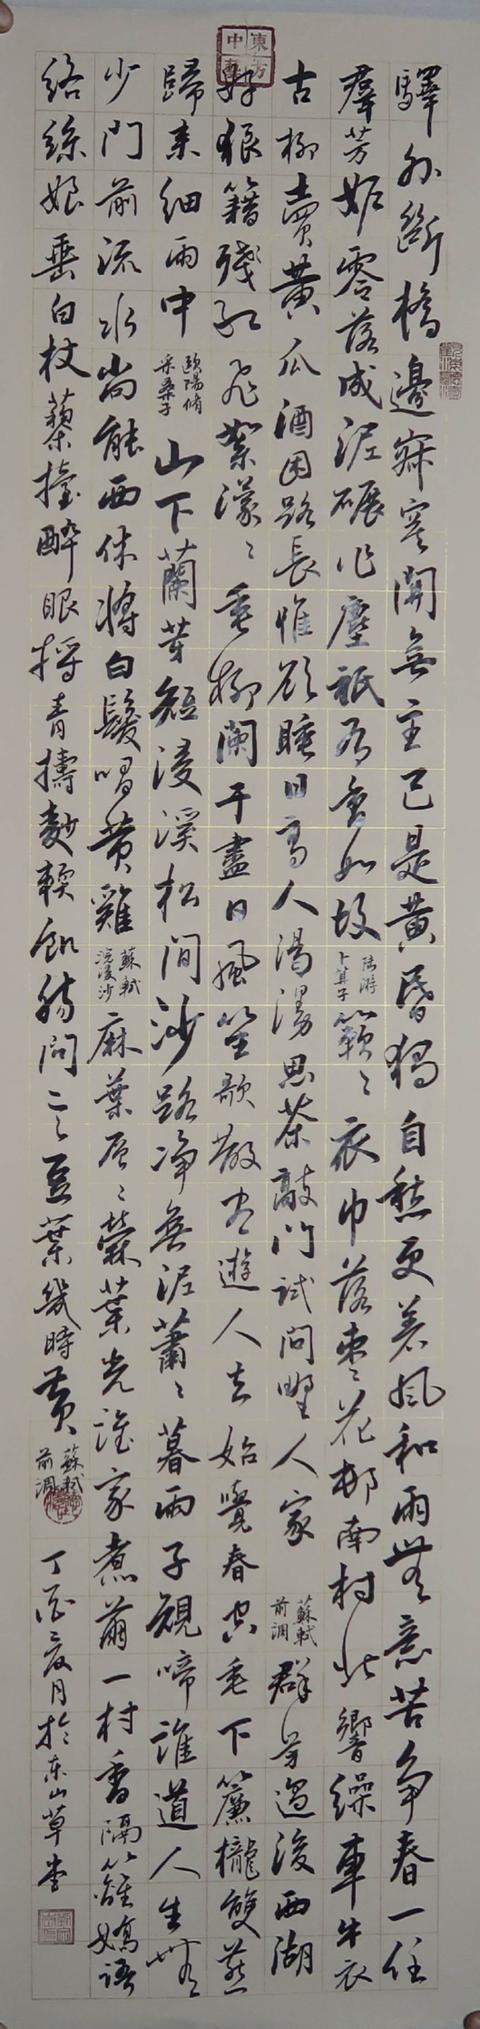 驛外斷橋邊寂寞開無主已是黃昏獨自愁更著風和雨無意苦爭春一任
群芳妒零落成泥碾作塵祇有香如故 陸游卜算子 簌〻衣巾落棗花村南村北響繰車牛衣
古柳賣黃瓜酒困路長惟欲睡日高人渴漫思茶敲門試問野人家 蘇軾前調 群芳過後西湖
好狼籍殘紅飛絮濛〻垂柳闌干盡日風笙歌散盡遊人去始覺春空垂下簾櫳雙燕
歸來細雨中 歐陽脩采桑子 山下蘭芽短浸溪松間沙路淨無泥蕭〻暮雨子規啼誰道人生無
少門前流水尚能西休將白髮唱黃雞 蘇軾浣溪沙 麻葉層〻檾葉光誰家煮繭一村香隔籬嬌語
絡絲娘垂白杖藜擡醉眼捋青擣麨軟飢腸問言豆葉幾時黃 蘇軾前調 丁酉夏月於東山草堂
東方中